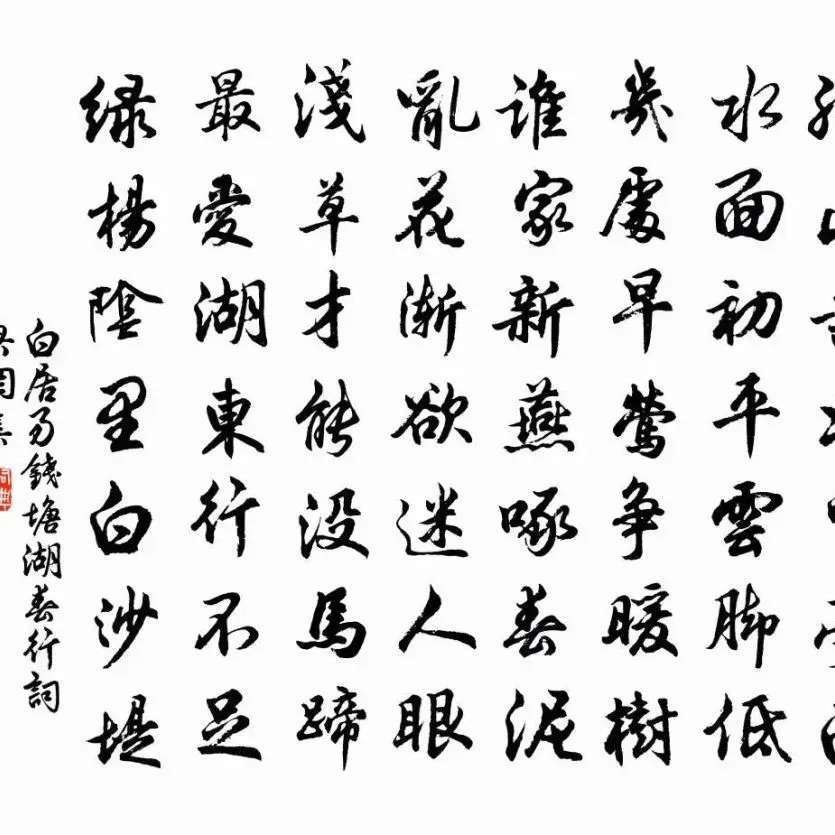 水面初平雲脚低
幾處早鶯争暖樹
誰家新燕啄春泥
亂花漸欲迷人眼
淺草才能没馬蹄
最愛湖東行不足
绿楊陰里白沙堤
白居易錢塘湖春行詞